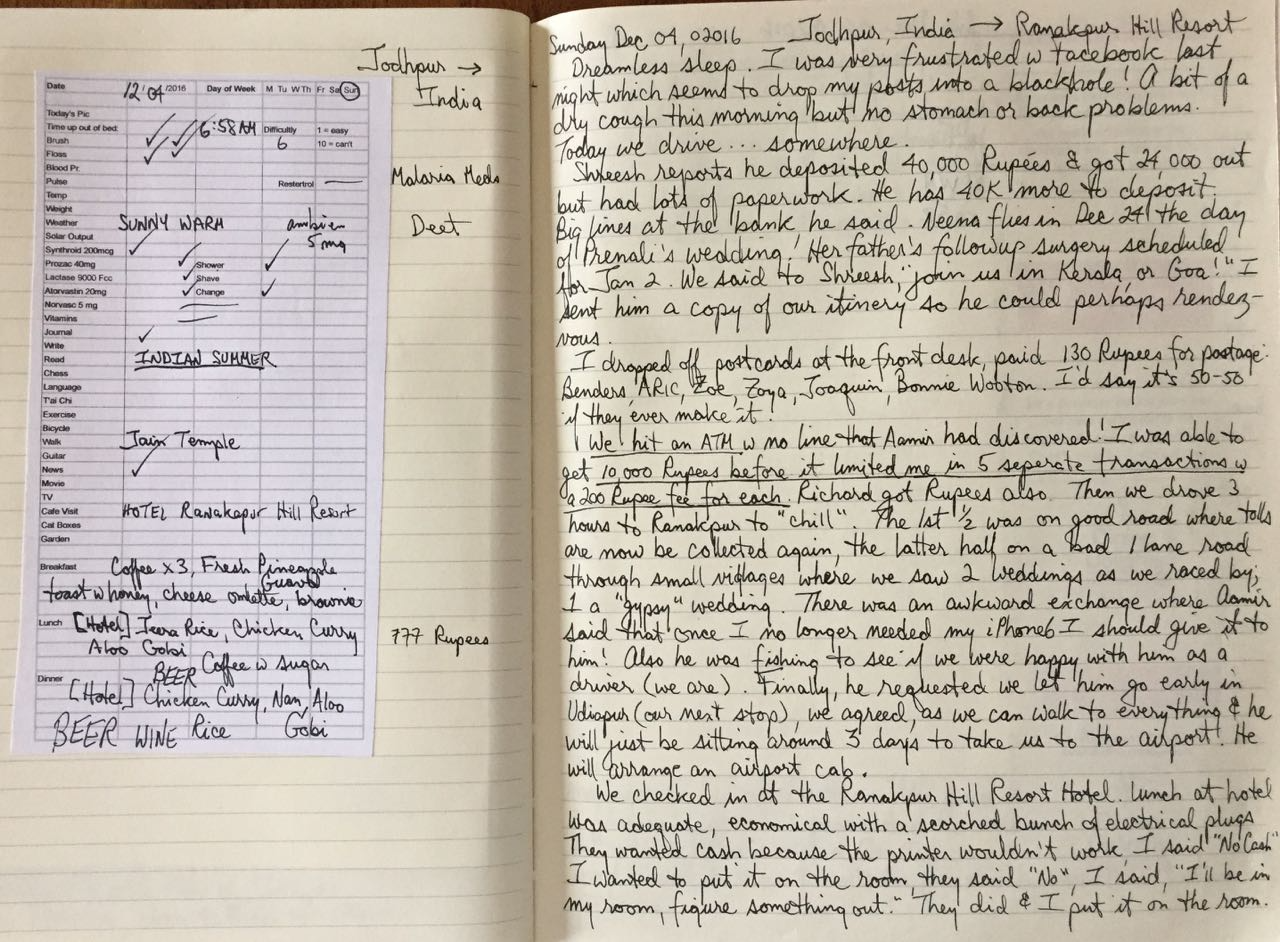 Jodhpur →
India
Malaria Meds
Deet
777 Rupees
Date 12 04 /2016 Day of Week M Tu W Th Fr Sa Sun
Today's Pic
Time up out of bed: 6:58 AM Difficultly 1 = easy
Brush 6 10 = can't
Floss
Blood Pr.
Pulse Restertrol —
Temp
Weight
Weather SUNNY WARM ambien
Solar Output 5 mg
Synthroid 200mcg ✓
Prozac 40mg ✓ Shower ✓
Lactase 9000 Fcc ✓ Shave
Atorvastin 20mg ✓ Change ✓
Norvasc 5 mg
Vitamins
Journal ✓
Write
Read INDIAN SUMMER
Chess
Language
T'ai Chi
Exercise
Bicycle
Walk Jain Temple
Guitar
News ✓
Movie
TV
Cafe Visit HOTEL Ranakapur Hill Resort
Cat Boxes
Garden
Breakfast Coffee x 3, Fresh Pineapple
Guava
toast w honey, cheese omlette, brownie
Lunch [Hotel] Jeera Rice, Chicken Curry
Aloo Gobi
BEER Coffee w sugar
Dinner [Hotel] Chicken Curry, Nan, Aloo
BEER WINE Rice Gobi
Sunday Dec 04, 02016 Jodhpur, India → Ranakpur Hill Resort
Dreamless sleep. I was very frustrated w facebook last
night which seems to drop my posts into a blackhole! A bit of a
dry cough this morning but no stomach or back problems.
Today we drive... somewhere.
Shreesh reports he deposited 40,000 Rupees & got 24,000 out
but had lots of paperwork. He has 40K more to deposit.
Big lines at the bank he said. Neena flies in Dec 24! the day
of Prenali's wedding! Her father's followup surgery scheduled
for Jan 2. We said to Shreesh, "join us in Kerala or Goa!" I
sent him a copy of our itinery so he could perhaps rendez-
vous.
I dropped off postcards at the front desk, paid 130 Rupees for postage:
Benders, ARIC, Zoe, Zoya, Joaquin, Bonnie Wooton. I'd say it's 50-50
if they ever make it!
We hit an ATM w no line that Aamir had discovered! I was able to
get 10,000 Rupees before it limited me in 5 seperate transactions w
a 200 Rupee fee for each. Richard got Rupees also. Then we drove 3
hours to Ranakpur to "chill". The 1st 1/2 was on good road where tolls
are now be collected again, the latter half on a bad 1 lane road
through small villages where we saw 2 weddings as we raced by;
1 a "gypsy" wedding. There was an awkward exchange where Aamir
said that once I no longer needed my iPhone6 I should give it to
him! Also he was fishing to see if we were happy with him as a
driver (we are). Finally, he requested we let him go early in
Udiapur (our next stop), we agreed, as we can walk to everything & he
will just be sitting around 3 days to take us to the airport. He
will arrange an airport cab.
We checked in at the Ranakpur Hill Resort Hotel. Lunch at hotel
was adequate, economical with a scorched bunch of electrical plugs
They wanted cash because the printer wouldn't work, I said "No Cash"
I wanted to put it on the room, they said "No", I said, "I'll be in
my room, figure something out." They did & I put it on the room.